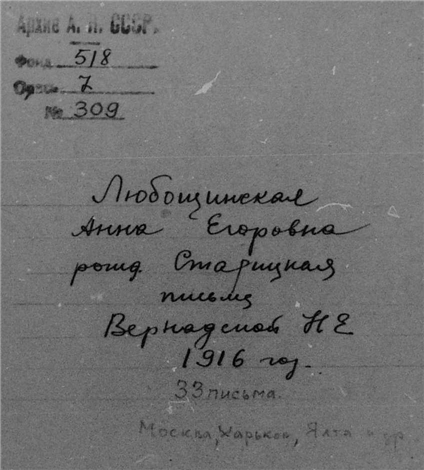 Архив А. Н. СССР.
Фонд 518
Опись 7
№ 309
Любощинская
Анна Егоровна
рожд. Старицкая
письма
Вернадской Н Е
1916 год.
33 письма.
Москва, Харьков, Ялта и др.